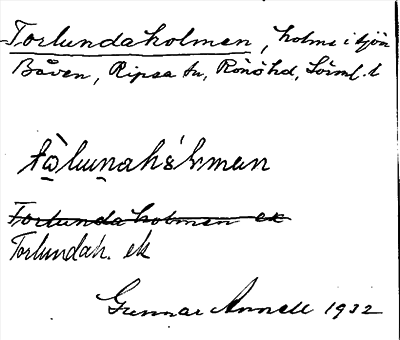 Torlundaholmen, holme i sjön
Båven, Ripsa sn, Rönöhd, Sörml. l
Torlundaholmen ek
Torlundah. ek
Gunnar Annell 1932